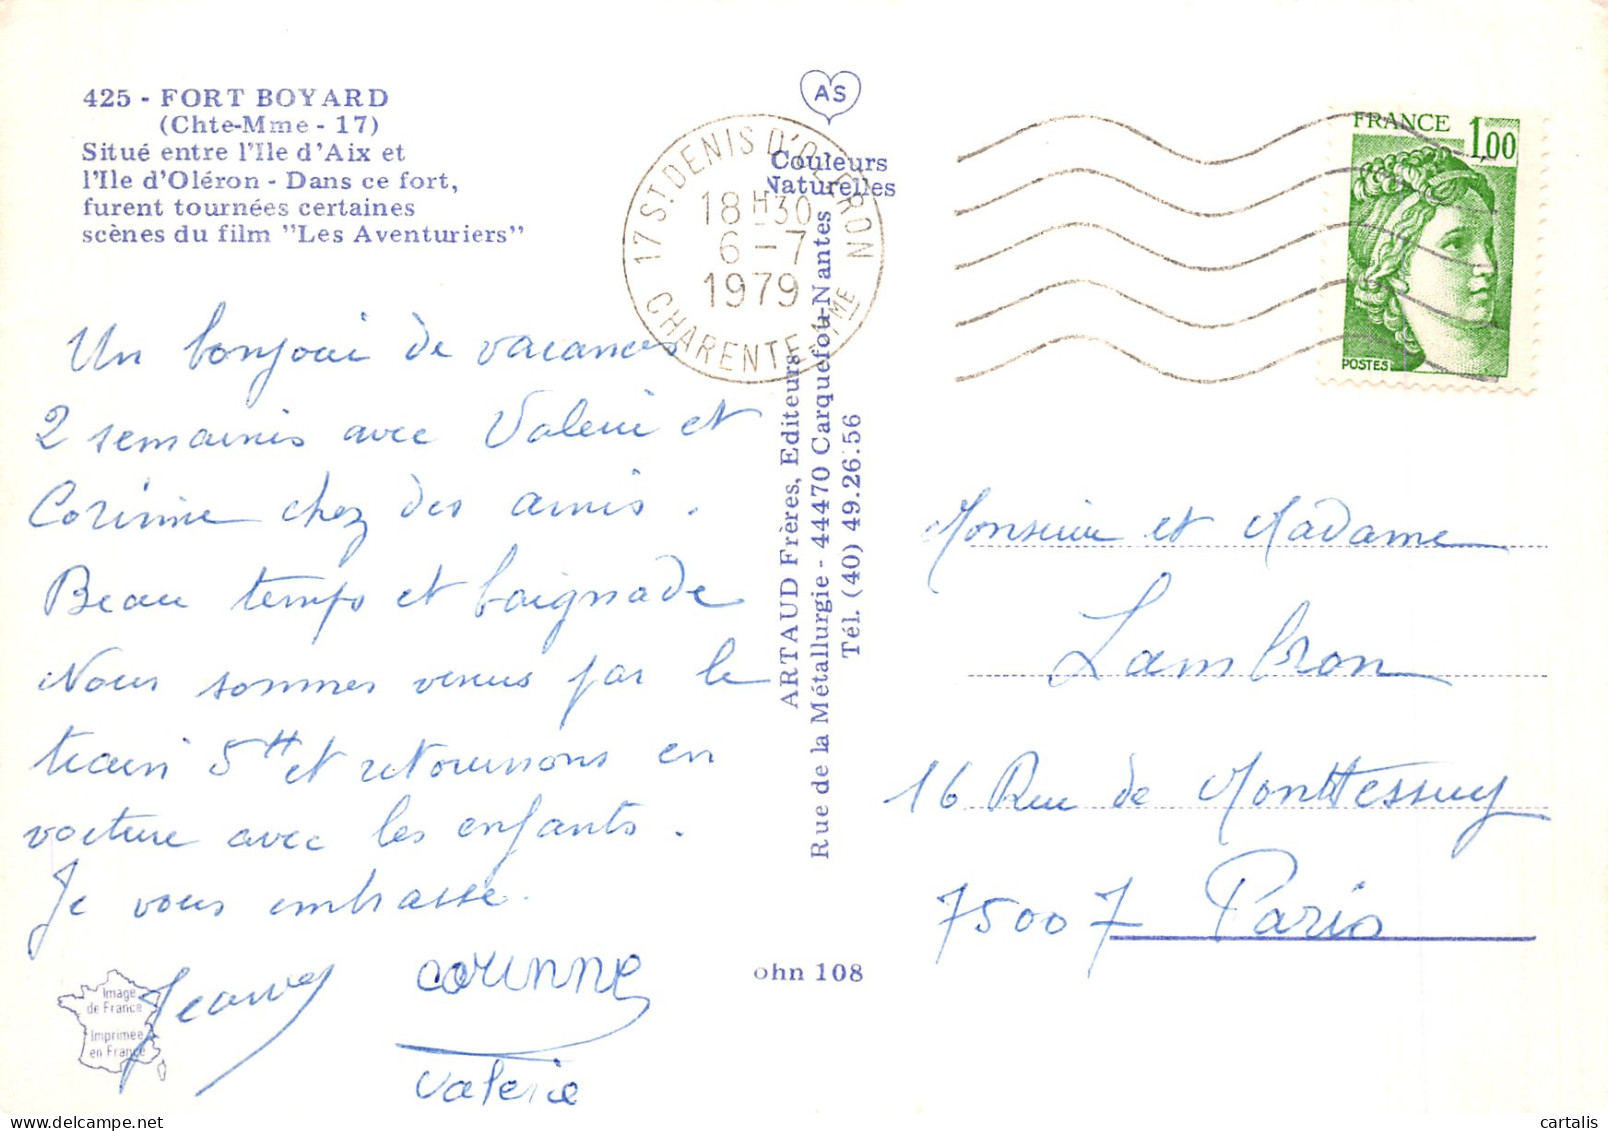 425 - FORT BOYARD
(Chte-Mme - 17)
Situé entre l'Ile d'Aix et
l'Ile d'Oléron - Dans ce fort,
furent tournées certaines
scènes du film "Les Aventuriers"
Un bonjour de vacances
2 semaines avec Valérie et
Corinne chez des amis.
Beau temps et baignade
Nous sommes venus par le
train 5H et retournons en
voiture avec les enfants.
Je vous embrasse.
Corinne
Valérie
Image
de France
Imprimée
en France
AS
Couleurs
Naturelles
ARTAUD Frères, Editeurs
Rue de la Métallurgie - 44470 Carquefou-Nantes
Tél. (40) 49.26.56
ohn 108
17 ST DENIS D'OLERON
18H30
6-7
1979
CHARENTE-MME
FRANCE 1,00
POSTES
Monsieur et Madame
Lambron
16 Rue de Monttessuy
75007 Paris
cartalis